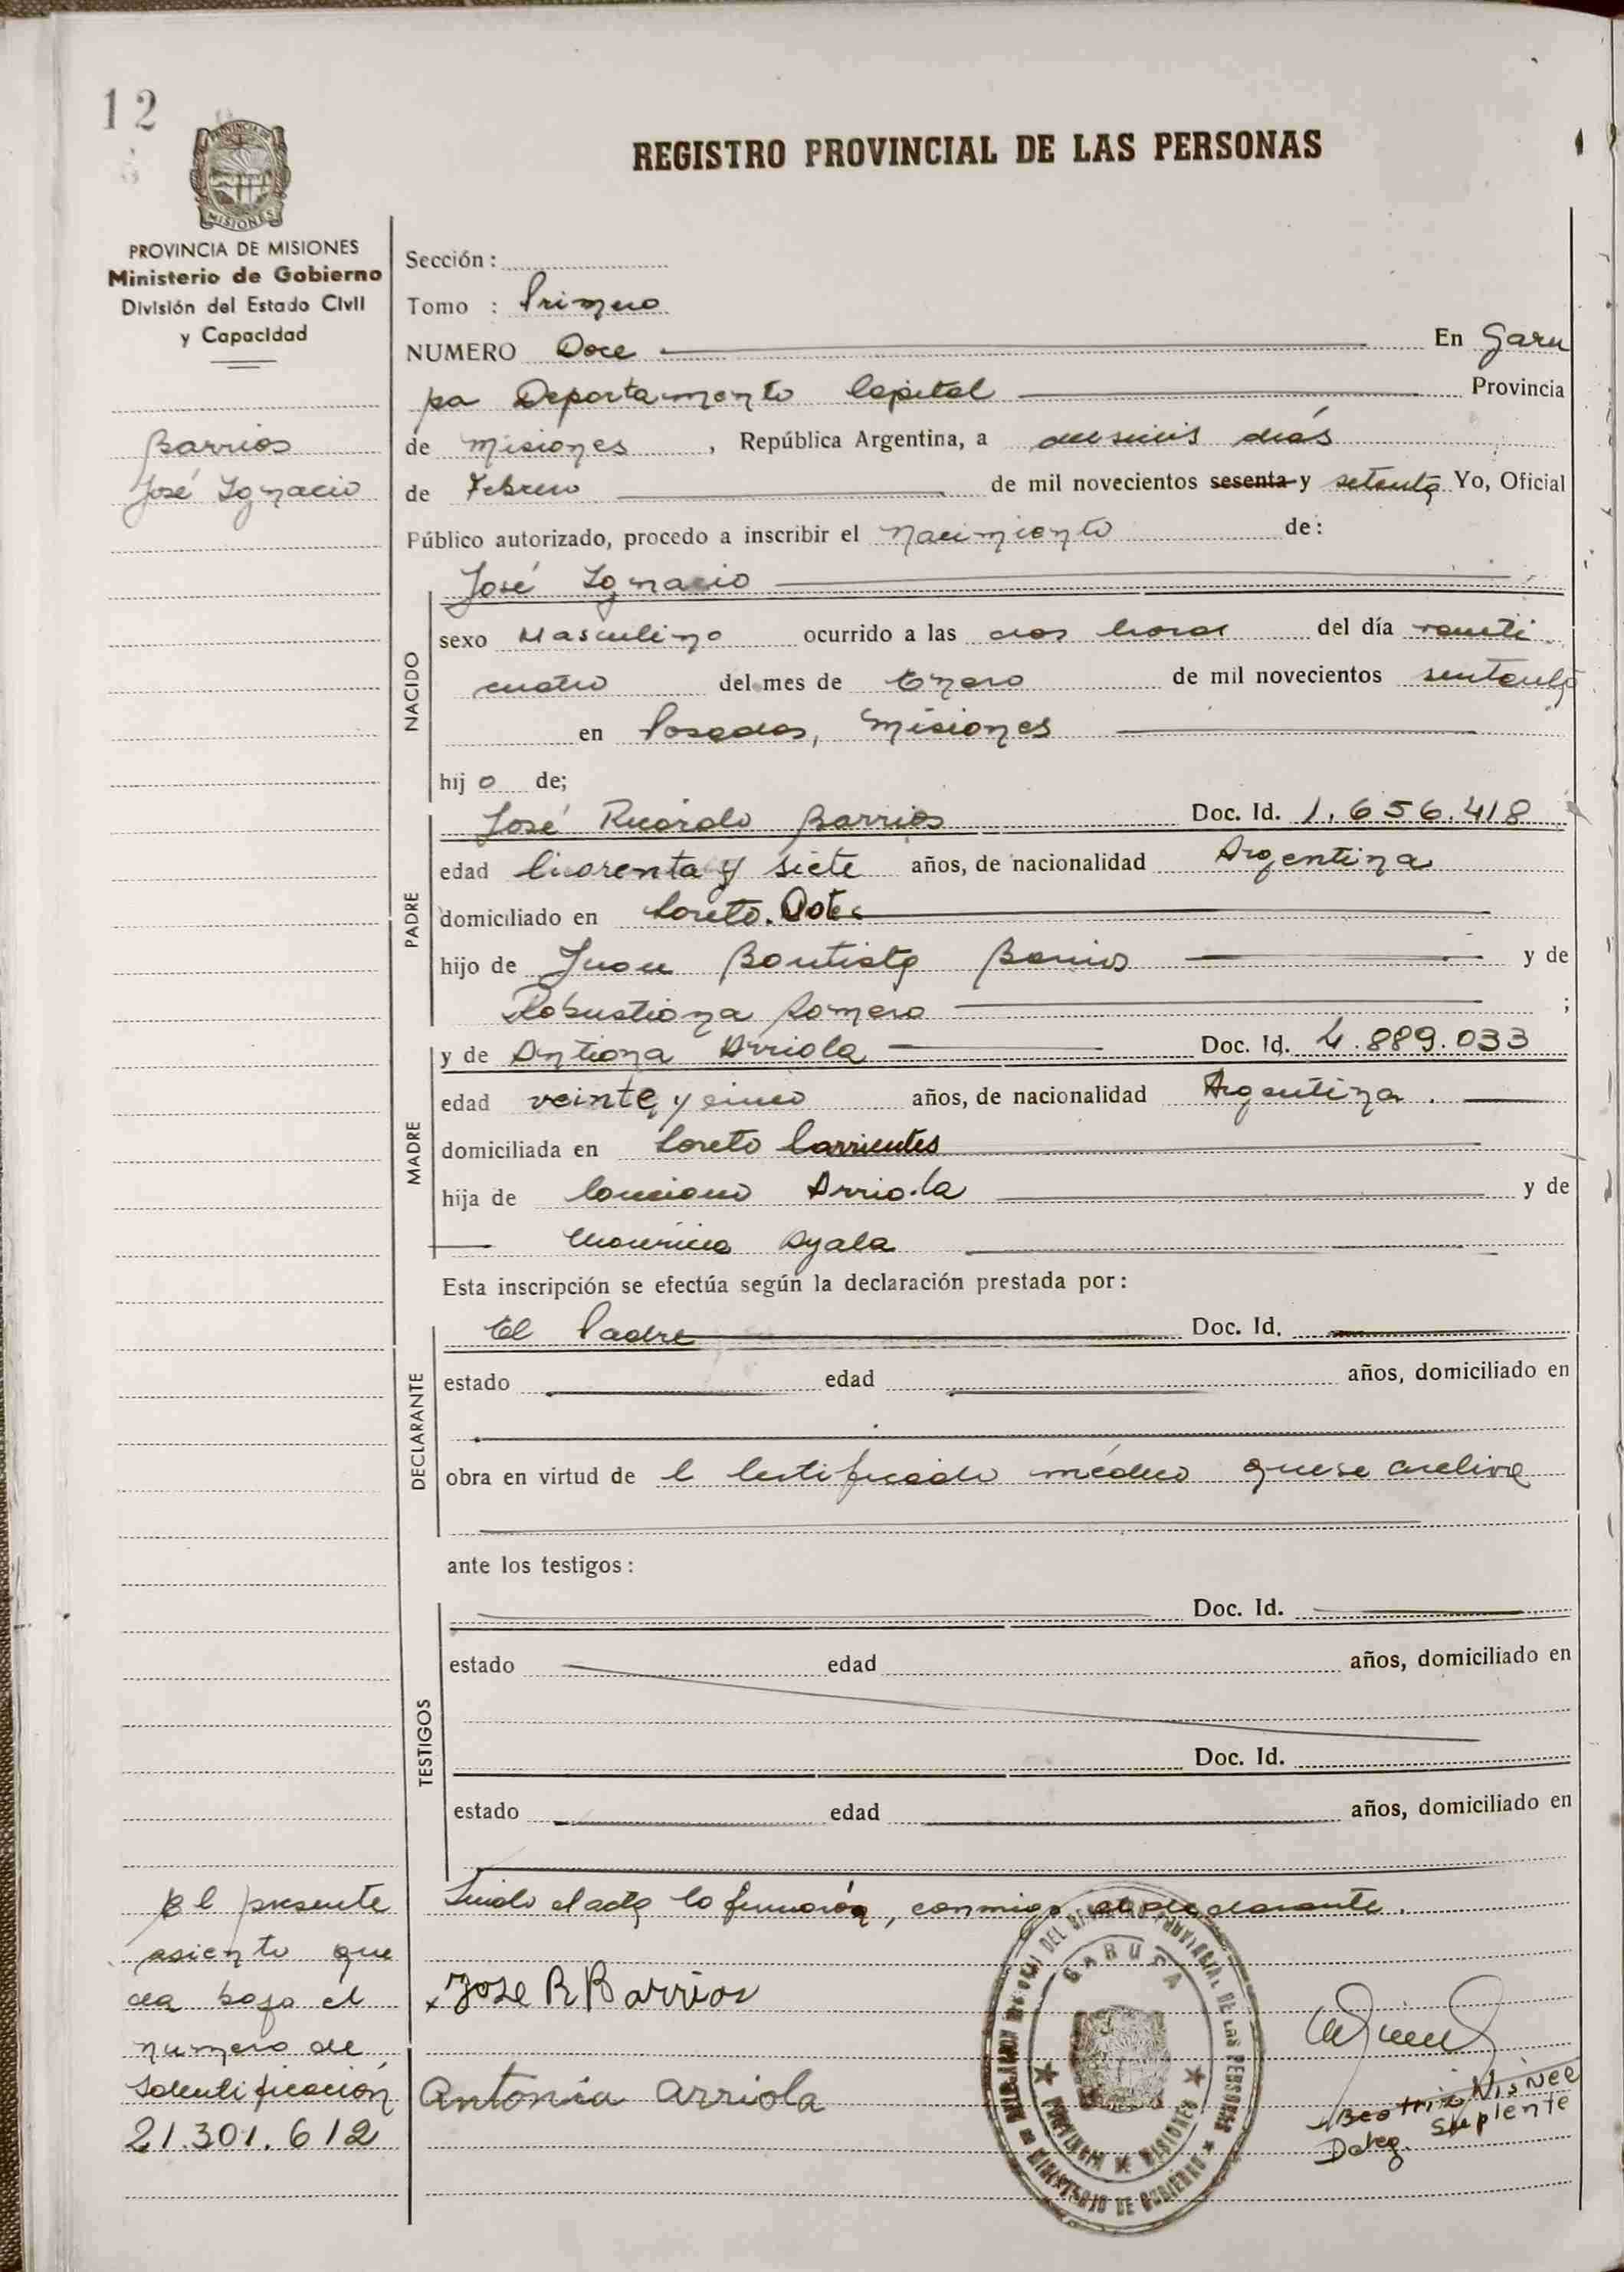 12
REGISTRO PROVINCIAL DE LAS PERSONAS
PROVINCIA DE MISIONES
Ministerio de Gobierno
División del Estado Civil
y Capacidad
Barrios
José Ignacio
Sección :
Tomo : Primero
NUMERO Doce En Garu
pa Departamento Capital Provincia
de Misiones , República Argentina, a dieciseis días
de Febrero de mil novecientos sesenta y setenta Yo, Oficial
Público autorizado, procedo a inscribir el Nacimiento de:
José Ignacio
NACIDO
sexo Masculino ocurrido a las dos horas del día veinti
cuatro del mes de Enero de mil novecientos
en Posadas, Misiones
hij o de;
PADRE
José Ricardo Barrios Doc. Id. 1.656.418
edad Cuarenta y siete años, de nacionalidad Argentina
domiciliado en Loreto.
hijo de Juan Bautista Barrios y de
Robustiana Romero ;
MADRE
y de Antiona Arriola Doc. Id. 4.889.033
edad veinte y cinco años, de nacionalidad Argentina .
domiciliada en Loreto Corrientes
hija de Arriola y de
Mauricia Ayala
Esta inscripción se efectúa según la declaración prestada por:
DECLARANTE
El Padre Doc. Id.
estado edad años, domiciliado en
obra en virtud de l Certificado médico que se archiva
ante los testigos:
TESTIGOS
Doc. Id.
estado edad años, domiciliado en
Doc. Id.
estado edad años, domiciliado en
Leido el acta la firmaron, conmigo el declarante.
El presente
asiento que
da bajo el
numero de
Identificación
21.301.612
x Jose R Barrios
Antonia arriola
GARUPA
PROVINCIA DE MISIONES
MINISTERIO DE GOBIERNO
DEL REGISTRO PROVINCIAL DE LAS PERSONAS
Beatriz
Deleg. Suplente